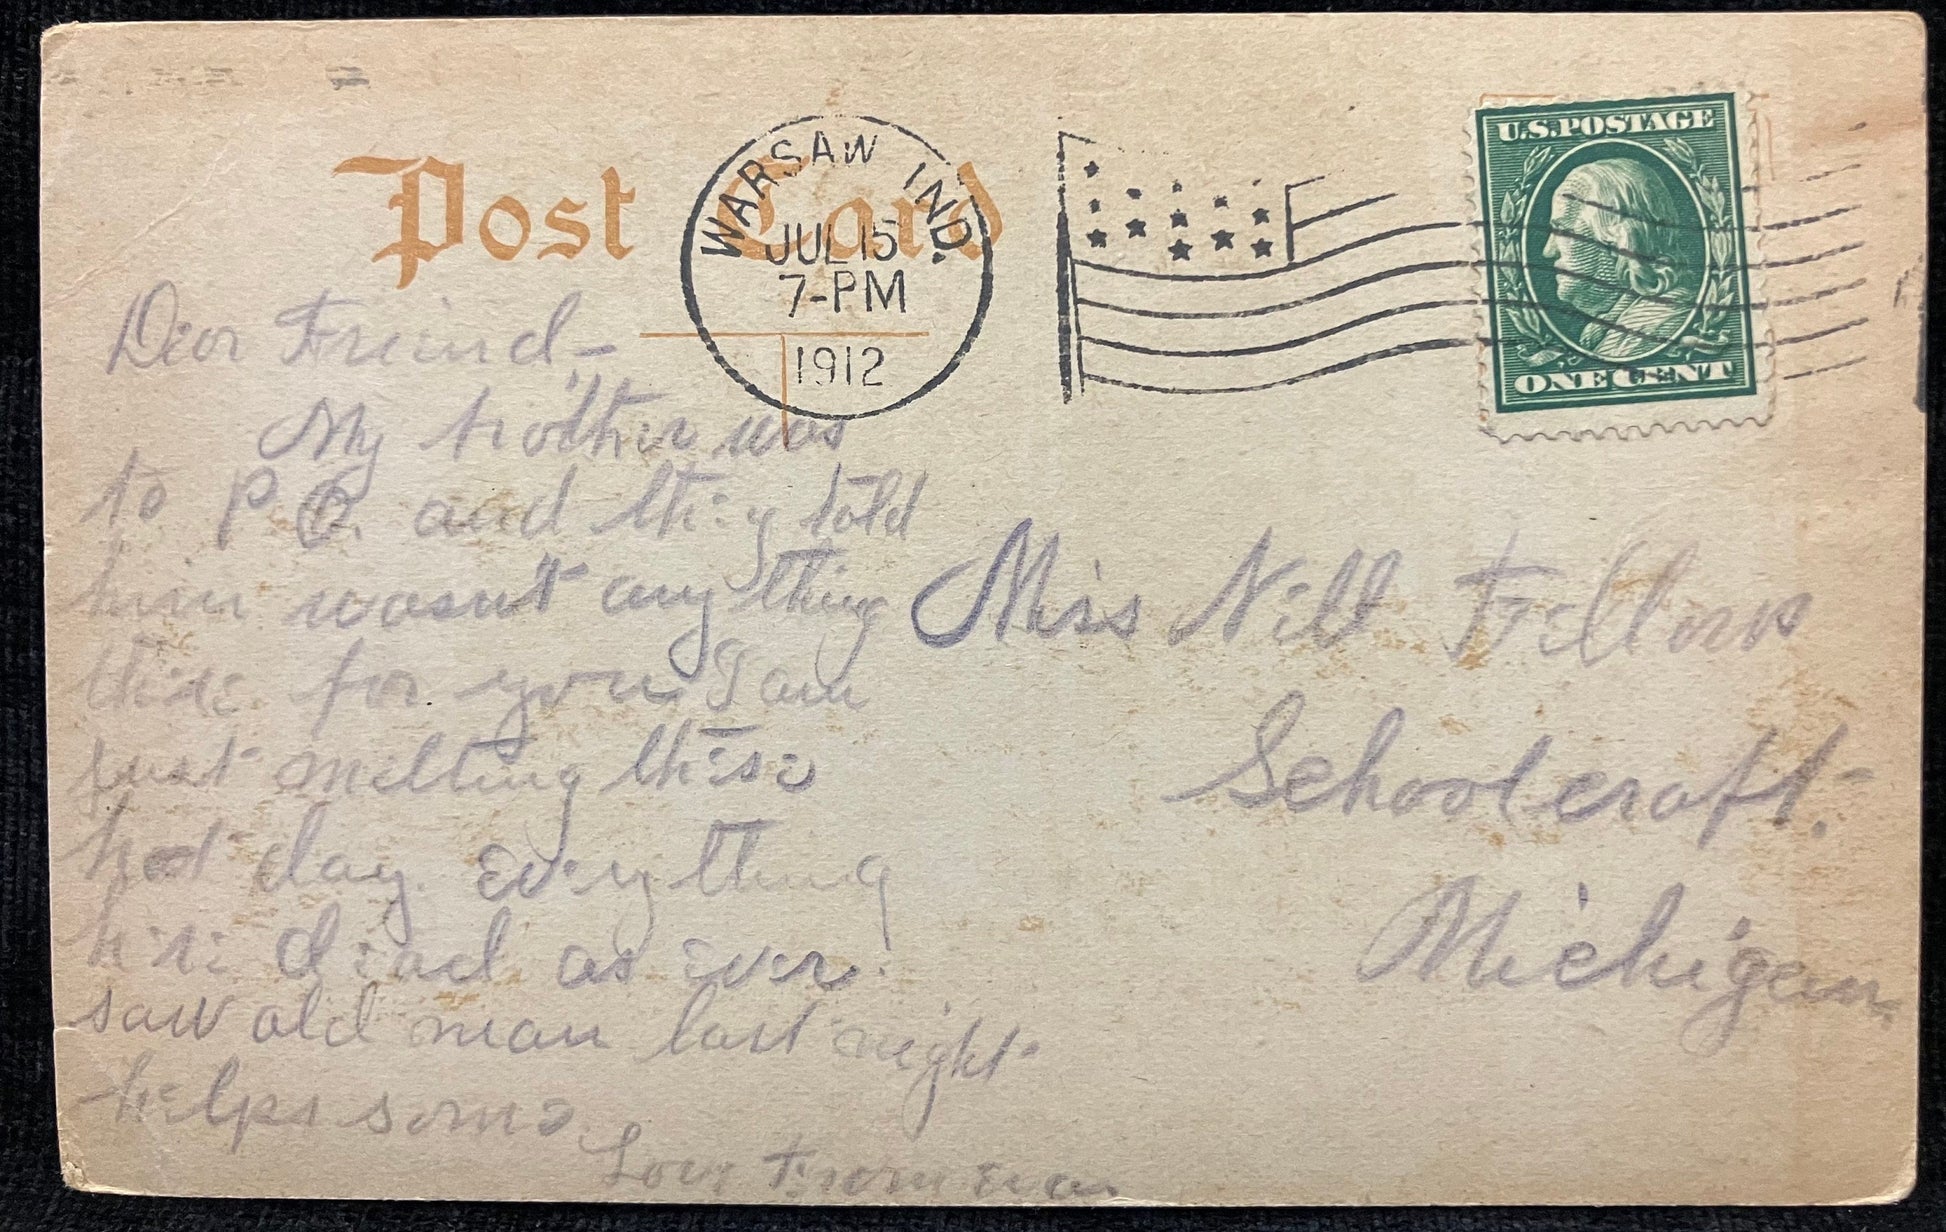 Post Card
WARSAW IND.
JUL 15
7-PM
1912
U.S. POSTAGE
ONE CENT
Dear Friend -
My brother was
to P.O. and they told
him wasn't any thing
there for you I am
just melting these
hot day. Everything
here dead as ever!
saw old man last night
helps some.
Love From
Miss Nell Fellows
Schoolcraft.
Michigan